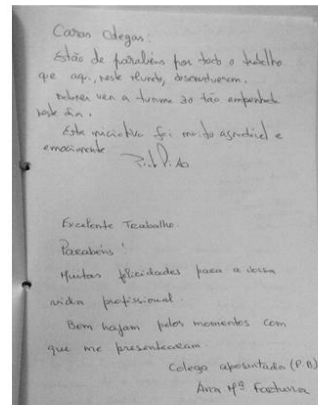 Caros Colegas:
Estão de parabéns por todo o trabalho
que aqui, neste evento, desenvolveram.
Adorei ver a turma tão empenhada
neste dia.
Esta iniciativa foi muito agradável e
emocionante
Excelente Trabalho.
Parabéns!
Muitas felicidades para a vossa
vida profissional.
Bem hajam pelos momentos com
que me presentearam.
Colega aposentada (P.B)
Ana Mª Fortuna